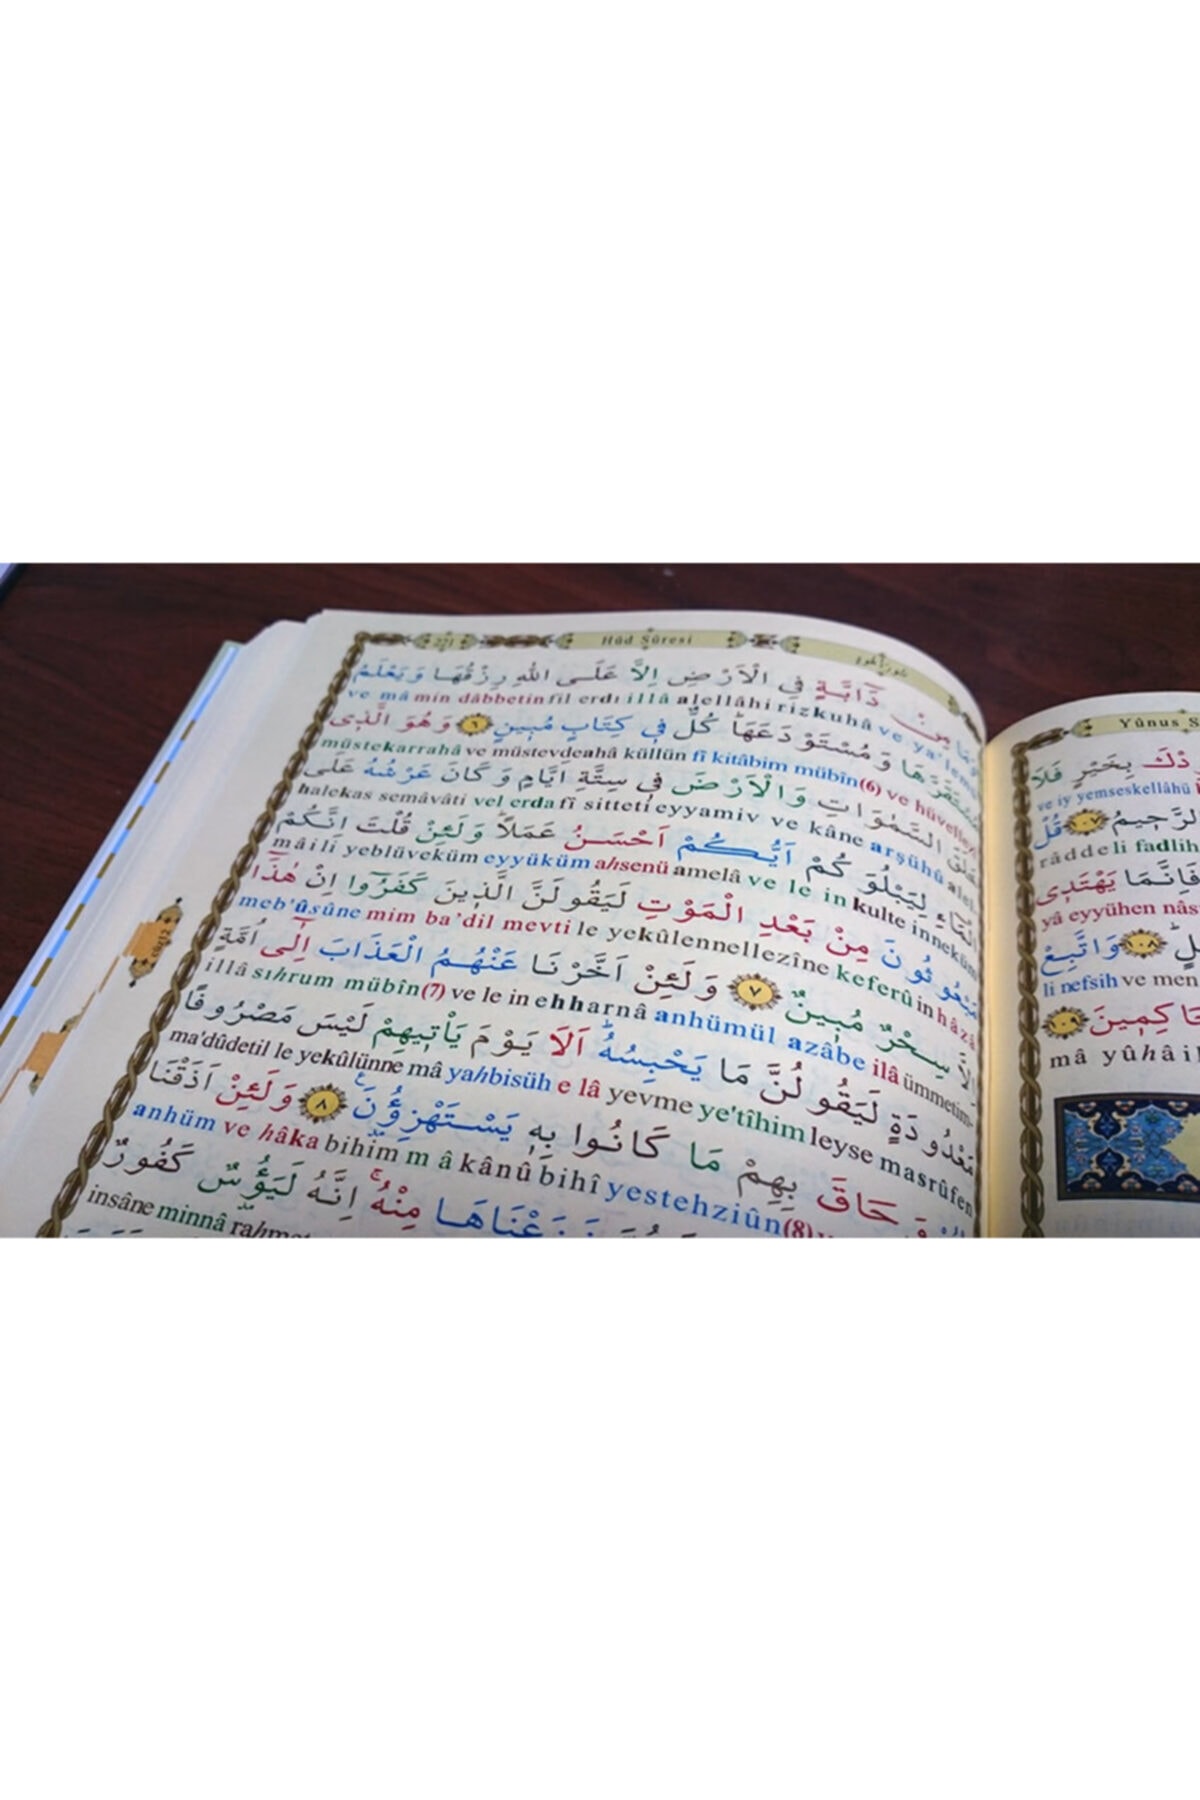 221 Hûd Sûresi
مِنْ دَٓابَّةٍ فِي الْاَرْضِ اِلَّا عَلَى اللّٰهِ رِزْقُهَا وَيَعْلَمُ
ve mâ min dâbbetin fil erdı illâ alellâhi rizkuhâ ve ya'lemü
مُسْتَقَرَّهَا وَمُسْتَوْدَعَهَاۜ كُلٌّ ف۪ي كِتَابٍ مُب۪ينٍ ﴿٦﴾ وَهُوَ الَّذ۪ي
müstekarrahâ ve müstevdeahâ küllün fî kitâbim mübîn(6) ve hüvellezî
خَلَقَ السَّمٰوَاتِ وَالْاَرْضَ ف۪ي سِتَّةِ اَيَّامٍ وَكَانَ عَرْشُهُ عَلَى
halekas semâvâti vel erda fî sitteti eyyamiv ve kâne arşühû alel
الْمَٓاءِ لِيَبْلُوَكُمْ اَيُّكُمْ اَحْسَنُ عَمَلاً وَلَئِنْ قُلْتَ اِنَّكُمْ
mâi li yeblüveküm eyyüküm ahsenü amelâ ve le in kulte inneküm
مَبْعُوثُونَ مِنْ بَعْدِ الْمَوْتِ لَيَقُولَنَّ الَّذ۪ينَ كَفَرُٓوا اِنْ هٰذَٓا
meb'ûsûne mim ba'dil mevti le yekûlennellezîne keferû in hâzâ
اِلَّا سِحْرٌ مُب۪ينٌ ﴿٧﴾ وَلَئِنْ اَخَّرْنَا عَنْهُمُ الْعَذَابَ اِلٰٓى اُمَّةٍ
illâ sıhrum mübîn(7) ve le in ehharnâ anhümül azâbe ilâ ümmetim-
مَعْدُودَةٍ لَيَقُولُنَّ مَا يَحْبِسُهُۜ اَلَا يَوْمَ يَأْت۪يهِمْ لَيْسَ مَصْرُوفًا
ma'dûdetil le yekûlünne mâ yahbisüh e lâ yevme ye'tîhim leyse masrûfen
حَاقَ بِهِمْ مَا كَانُوا بِه۪ يَسْتَهْزِؤُ۫نَ۟ ﴿٨﴾ وَلَئِنْ اَذَقْنَا
anhüm ve hâka bihim mâ kânû bihî yestehziûn(8)
نَزَعْنَاهَا مِنْهُۚ اِنَّهُ لَيَؤُ۫سٌ كَفُورٌ
insâne minnâ
CÜZ 12
Yûnus S
بِخَيْرٍ فَلَا
ve iy yemseskellâhü
الرَّح۪يمُ ﴿١٠٧﴾ قُلْ
râdde li fadlih
فَاِنَّمَا يَهْتَد۪ي
yâ eyyühen nâs
﴿١٠٨﴾ وَاتَّبِعْ
li nefsih ve men
﴿١٠٩﴾
mâ yûhâ il